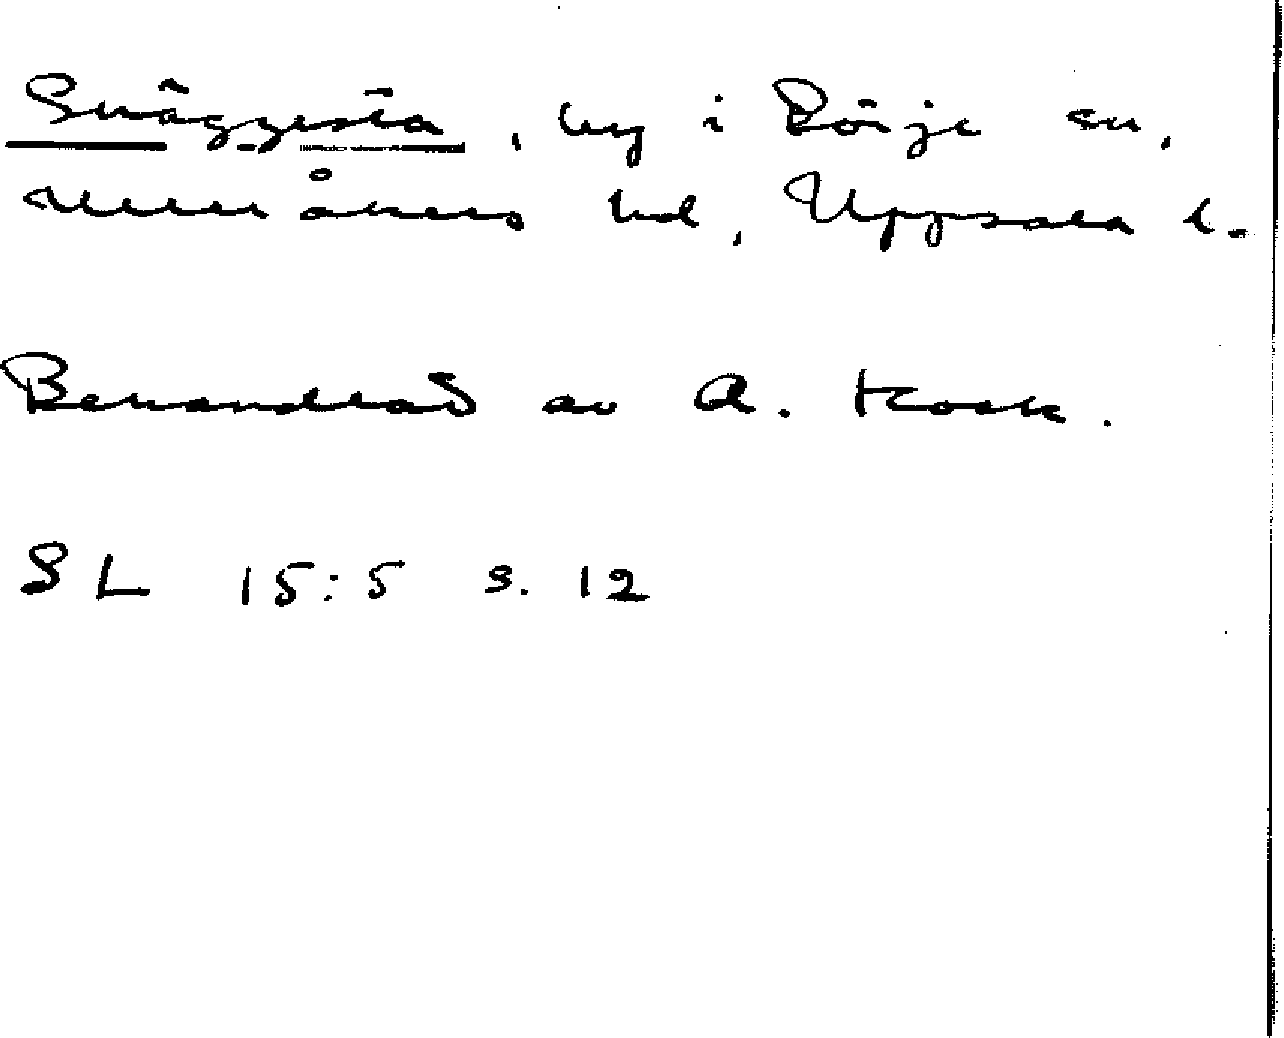 Skäggesta, by i Börje sn,
Ulleråkers hd, Uppsala l.
Behandlad av A. Kock.
SL 15:5 s. 12